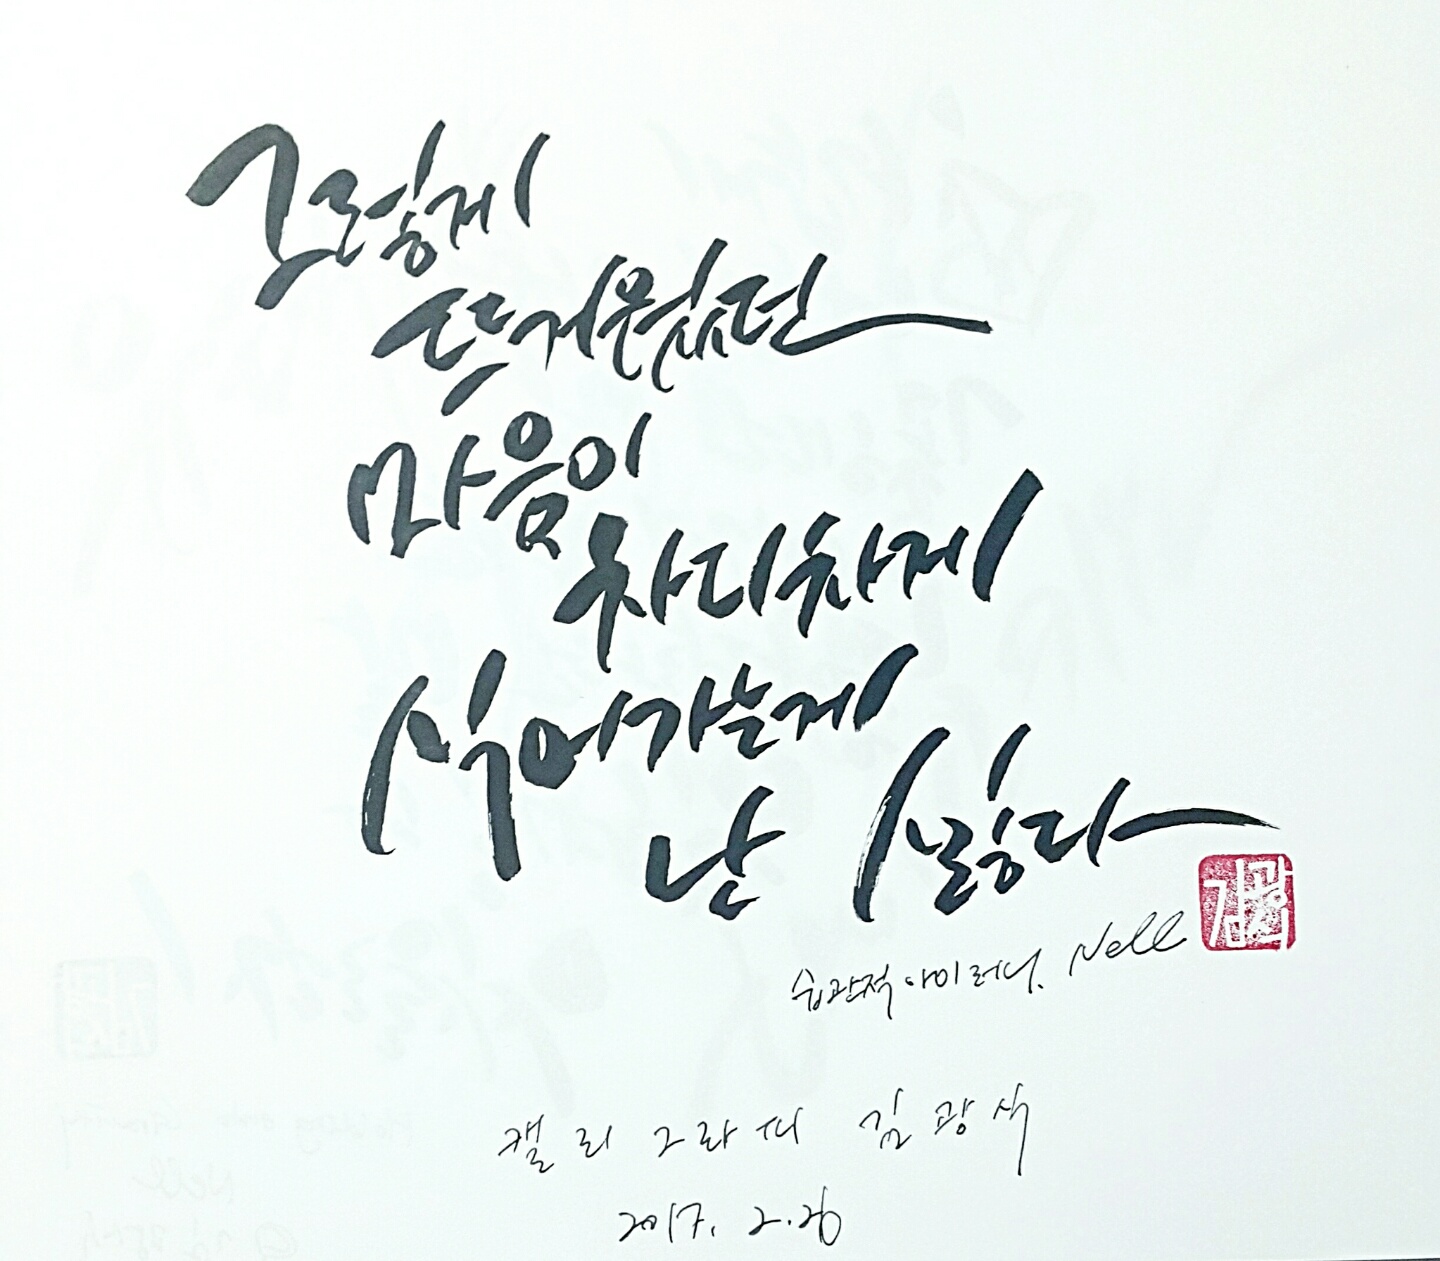 그렇게
뜨거웠던
마음이
차디차게
식어가는게
난 싫다
습관적 아이러니. Nell
김광석
캘리그라피 김광석
2017. 2. 26